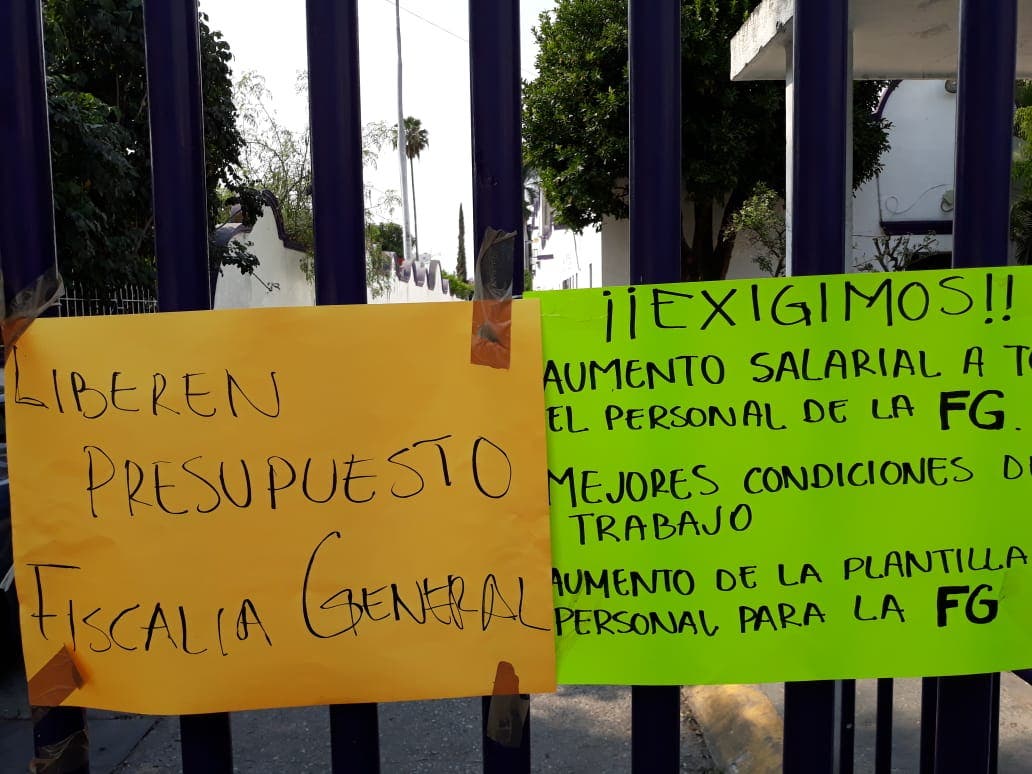 LIBEREN
PRESUPUESTO
FISCALIA GENERAL
¡¡EXIGIMOS!!
AUMENTO SALARIAL A
EL PERSONAL DE LA FG.
MEJORES CONDICIONES
TRABAJO
AUMENTO DE LA PLANTILLA
PERSONAL PARA LA FG